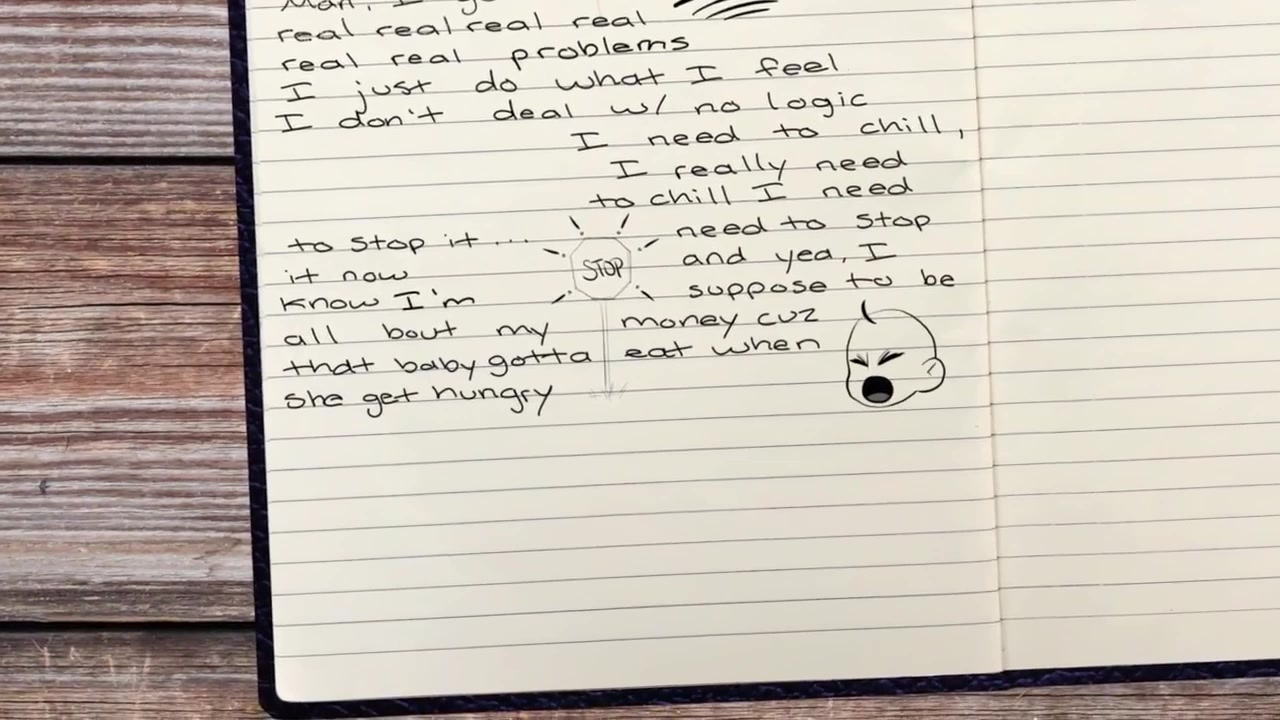 Man, I
real real real real
real real problems
I just do what I feel
I don't deal w/ no logic
I need to chill,
I really need
to chill I need
to stop it... need to stop
it now and yea, I
know I'm suppose to be
all bout my money cuz
that baby gotta eat when
she get hungry
STOP